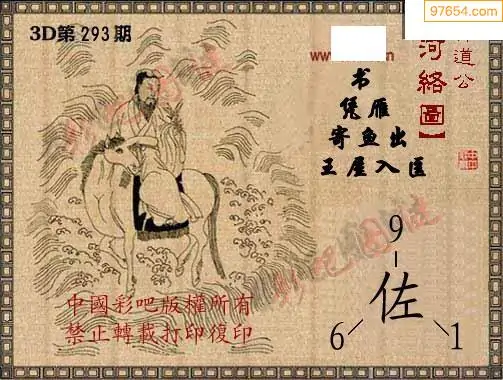 97654.com
3D第293期
www.
道公
河絡圖】
书
凭雁
寄鱼出
王屋入匡
彩吧图谜
彩吧图谜
9
佐
6 1
中國彩吧版權所有
禁止轉載打印復印